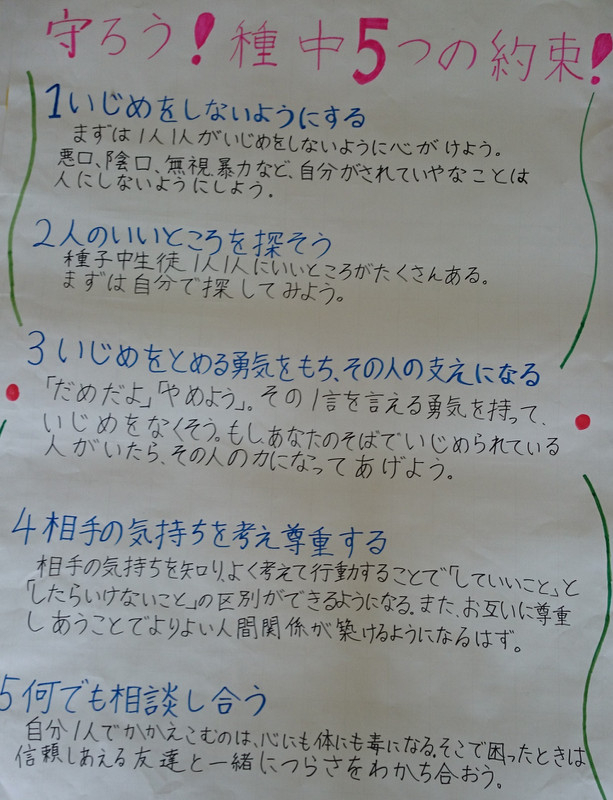 守ろう！種中5つの約束！
1いじめをしないようにする
まずは1人1人がいじめをしないように心がけよう。
悪口、陰口、無視、暴力など、自分がされていやなことは
人にしないようにしよう。
2人のいいところを探そう
種子中生徒1人1人にいいところがたくさんある。
まずは自分で探してみよう。
3いじめをとめる勇気をもち、その人の支えになる
「だめだよ」「やめよう」。その1言を言える勇気を持って、
いじめをなくそう。もし、あなたのそばでいじめられている
人がいたら、その人の力になってあげよう。
4相手の気持ちを考え尊重する
相手の気持ちを知り、よく考えて行動することで「していいこと」と
「したらいけないこと」の区別ができるようになる。また、お互いに尊重
しあうことでよりよい人間関係が築けるようになるはず。
5何でも相談し合う
自分1人でかかえこむのは、心にも体にも毒になる。そこで困ったときは
信頼しあえる友達と一緒につらさをわかち合おう。